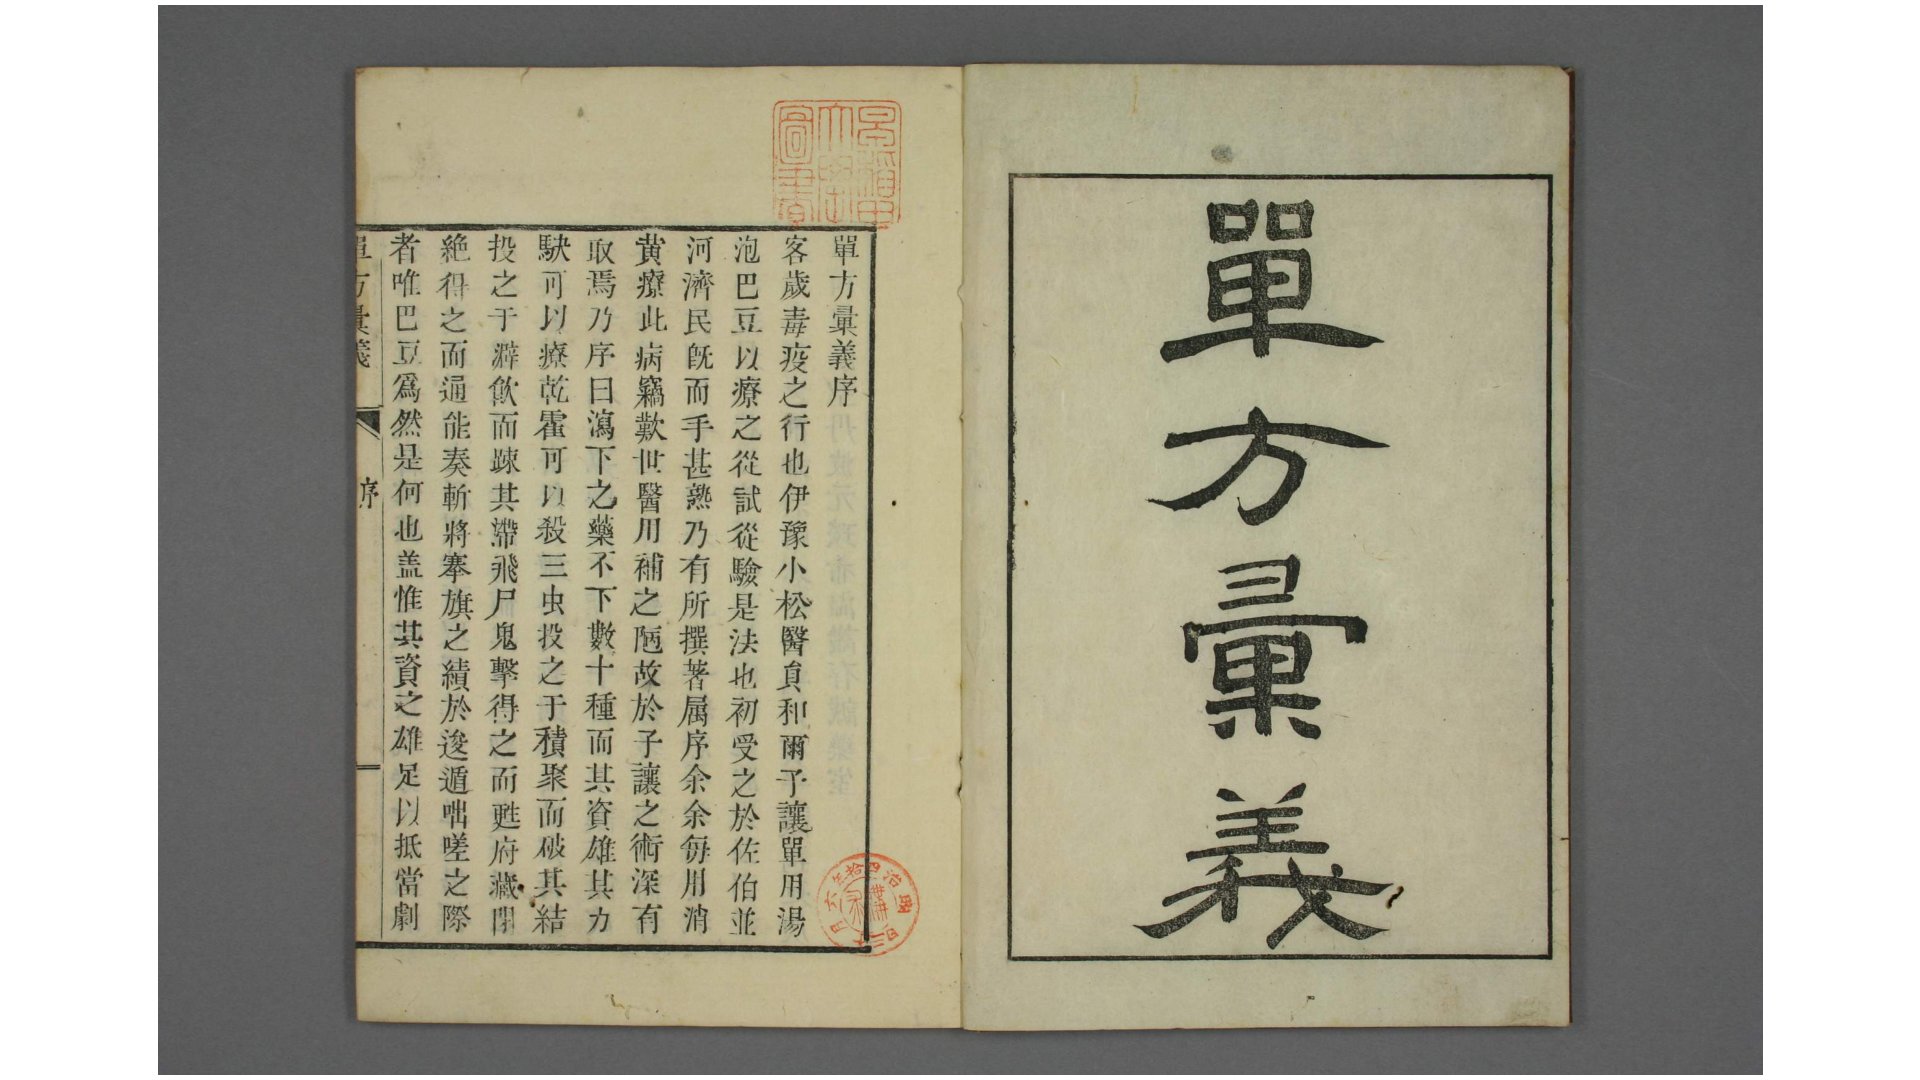 單方彙義
早稲田
大學
圖書
單方彙義序
客歲毒疫之行也伊豫小松醫眞和爾予讓單用湯
泡巴豆以療之從試從驗是法也初受之於佐伯並
河濟民既而手甚熟乃有所撰著属序余余每用消
黄療此病竊歎世醫用補之陋故於子讓之術深有
取焉乃序曰瀉下之藥不下數十種而其資雄其力
駃可以療乾霍可以殺三虫投之于積聚而破其結
投之于澼飲而踈其滯飛尸鬼擊得之而甦府藏閉
絶得之而通能奏斬將搴旗之績於逡遁咄嗟之際
者唯巴豆爲然是何也盖惟其資之雄足以抵當劇
單方彙義
序